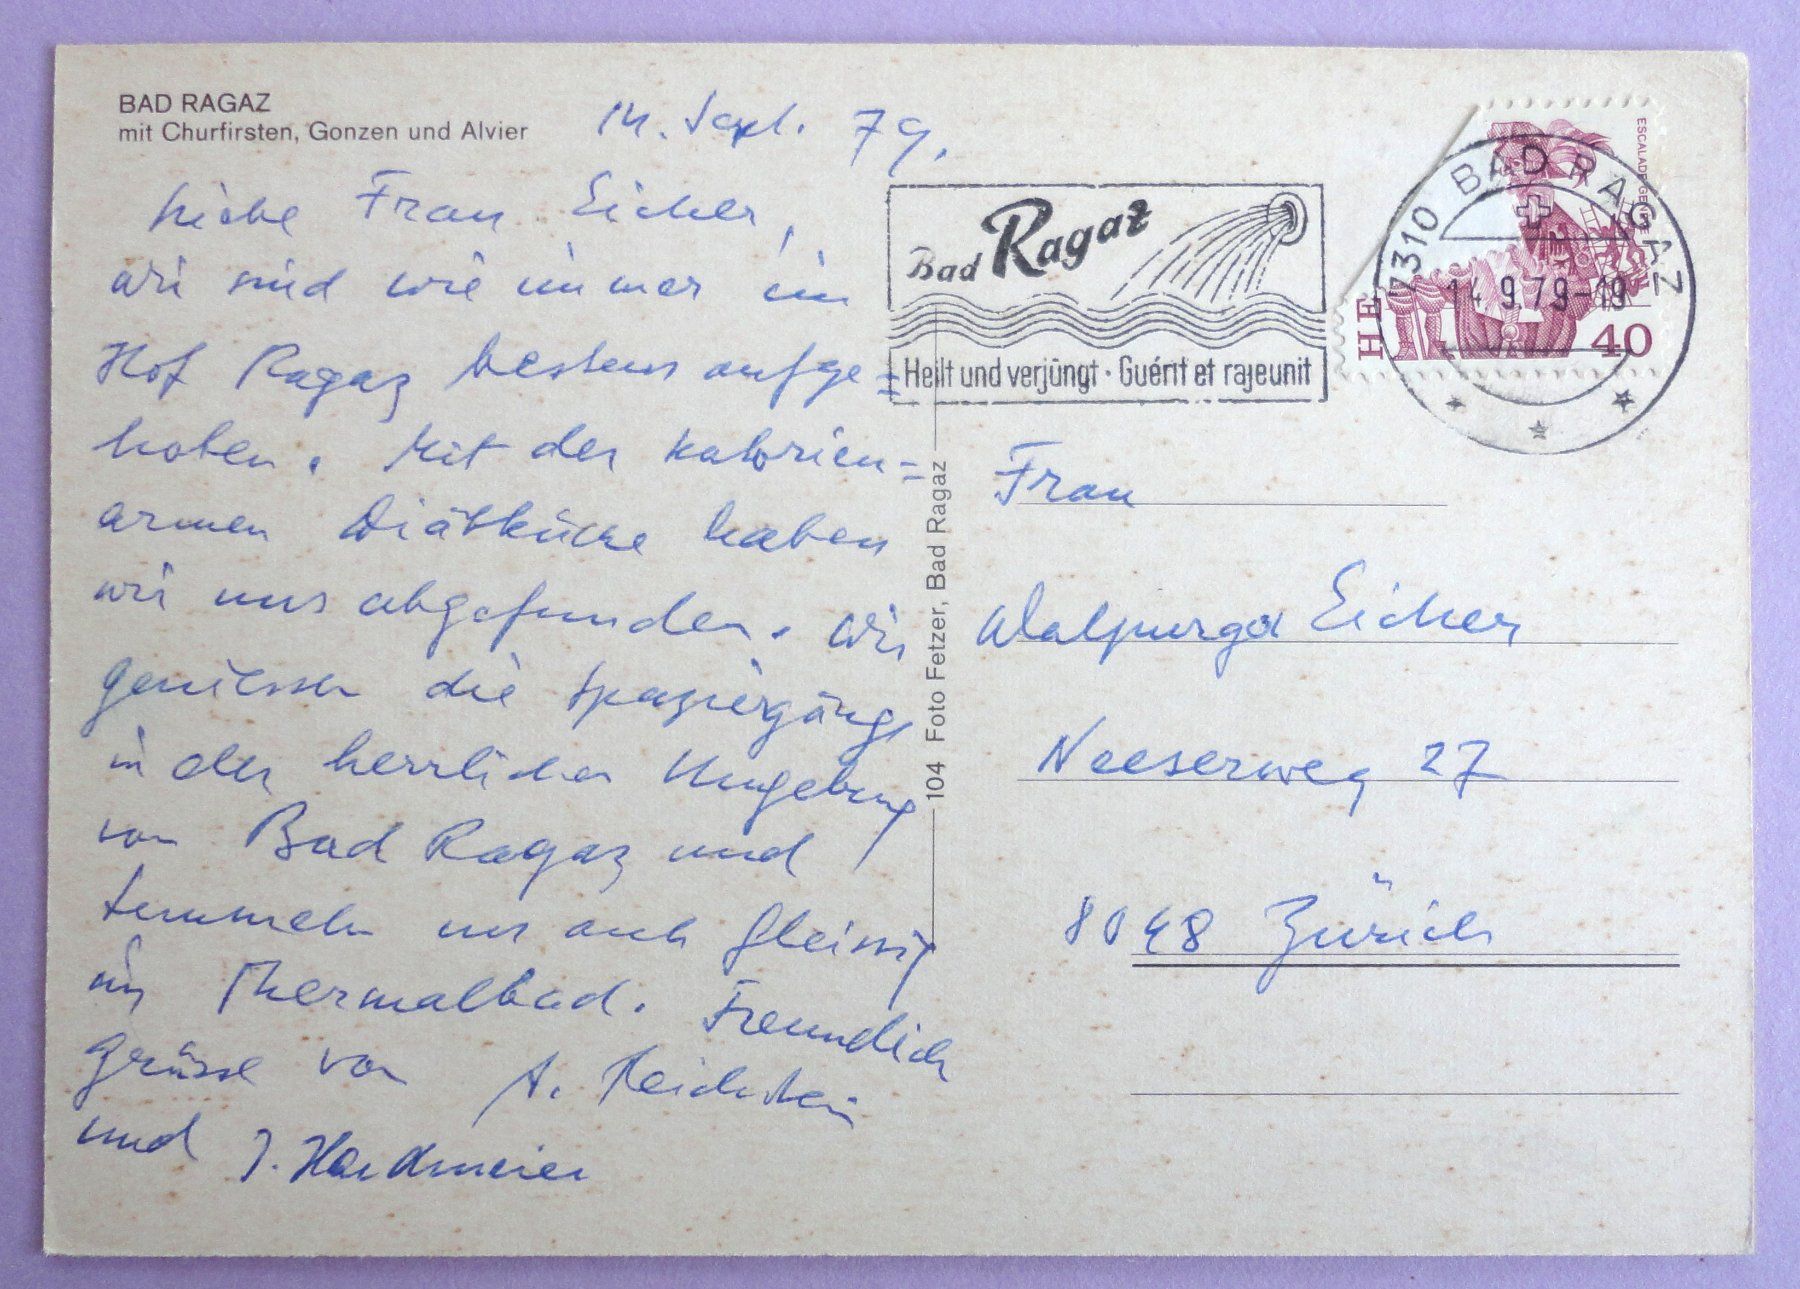 BAD RAGAZ
mit Churfirsten, Gonzen und Alvier
14. Sept. 79.
Liebe Frau Eicher,
wir sind wie immer im
Hof Ragaz bestens aufge=
hoben. Mit der kalorien=
armen Diätküche haben
wir uns abgefunden. Wir
geniessen die Spaziergänge
in der herrlichen Umgebung
von Bad Ragaz und
tummeln uns auch fleissig
im Thermalbad. Freundlich
grüsse von A. Reichstein
und J. Hardmeier
Bad Ragaz
Heilt und verjüngt · Guérit et rajeunit
7310 BAD RAGAZ
14.9.79-19
ESCALADE GENÈVE
HE
40
104 Foto Fetzer, Bad Ragaz
Frau
Walpurga Eicher
Neeserweg 27
8048 Zürich